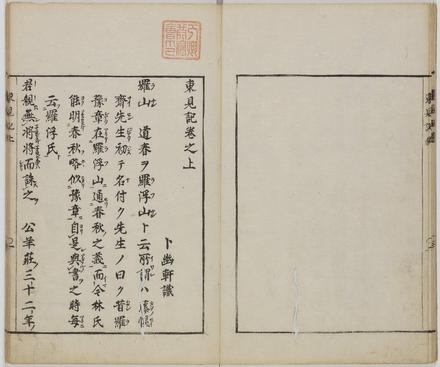 東見記卷之上
卜幽軒識
羅山 道春ヲ羅浮山ト云所謂ハ惺窩
齋先生初テ名付ク先生ノ曰ク昔羅
豫章在羅浮山通春秋之義而今林氏
能明春秋略似豫章自是與書之時每
云羅浮氏
君親無將將而誅之 公羊莊三十二年